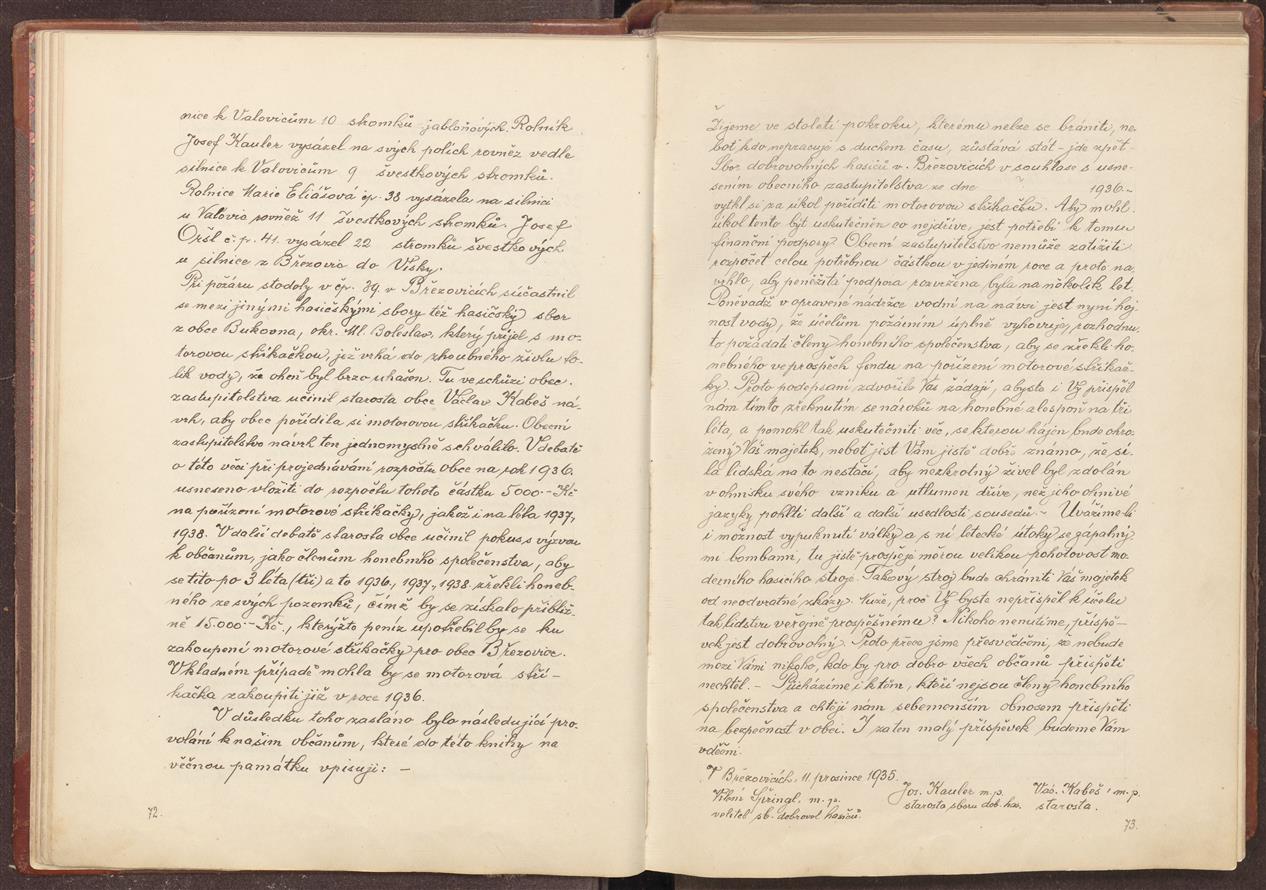 nice k Valovicům 10 stromků jabloňových. Rolník
Josef Kauler vysázel na svých polích rovněž vedle
silnice k Valovicům 9 švestkových stromků.
Rolnice Marie Eliášová čp. 38 vysázela na silnici
u Valovic rovněž 11 švestkových stromků. Josef
Oršl č. p. 41. vysázel 22 stromků švestkových
u silnice z Březovic do Vísky.
Při požáru stodoly v čp. 39. v Březovicích súčastnil
se mezi jinými hasičskými sbory též hasičský sbor
z obce Bukovna, okr. Ml. Boleslav, který přijel s mo-
torovou stříkačkou, jež vrhá do zhoubného živlu to-
lik vody, že oheň byl brzo uhašen. Tu ve schůzi obec.
zastupitelstva učinil starosta obce Václav Kabeš ná-
vrh, aby obec pořídila si motorovou stříkačku. Obecní
zastupitelstvo návrh ten jednomyslně schválilo. V debatě
o této věci při projednávání rozpočtu obce na rok 1936.
usneseno vložiti do rozpočtu tohoto částku 5000.- Kč
na pořízení motorové stříkačky, jakož i na léta 1937,
1938. V další debatě starosta obce učinil pokus s výzvou
k občanům, jako členům honebního společenstva, aby
se tito po 3 léta (tři) a to 1936, 1937, 1938 zřekli honeb-
ného ze svých pozemků, čímž by se získalo přibliž-
ně 15.000.- Kč., kterýžto peníz upotřebil by se ku
zakoupení motorové stříkačky pro obec Březovice.
V kladném případě mohla by se motorová stří-
kačka zakoupiti již v roce 1936.
V důsledku toho zasláno bylo následující pro-
volání k našim občanům, které do této knihy na
věčnou památku vpisuji: -
72.
Žijeme ve století pokroku, kterému nelze se brániti, ne-
boť kdo nepracuje s duchem času, zůstává stát - jde zpět -
Sbor dobrovolných hasičů v Březovicích v souhlase s usne-
sením obecního zastupitelstva ze dne 1936.-
vytkl si za úkol poříditi motorovou stříkačku. Aby mohl
úkol tento býti uskutečněn co nejdříve, jest potřebí k tomu
finanční podpory. Obecní zastupitelstvo nemůže zatížiti
rozpočet celou potřebnou částkou v jediném roce a proto na-
vrhlo, aby peněžitá podpora rozvržena byla na několik let.
Poněvadž v opravené nádržce vodní na návsi jest nyní hoj-
nost vody, že účelům požárním úplně vyhovuje, rozhodnu-
to požádati členy honebního společenstva, aby se zřekli ho-
nebného ve prospěch fondu na pořízení motorové stříkač-
ky. Proto podepsaní zdvořile Vás žádají, abyste i Vy přispěl
nám tímto zřeknutím se nároků na honebné alespoň na tři
léta, a pomohl tak uskutečniti věc, se kterou hájen bude ohro-
žený Váš majetek, neboť jest Vám jistě dobře známo, že sí-
la lidská na to nestačí, aby nezkrotný živel byl zdolán
v ohnisku svého vzniku a utlumen dříve, než jeho ohnivé
jazyky pohltí další a další usedlosti sousedů. - Uvážíme-li
i možnost vypuknutí války a s ní letecké útoky se zápalný-
mi bombami, tu jistě prospěje měrou velikou pohotovost mo-
derního hasicího stroje. Takový stroj bude chrániti Váš majetek
od neodvratné zkázy. Nuže, proč Vy byste nepřispěl k účelu
tak lidstvu veřejně prospěšnému? Nikoho nenutíme, příspě-
vek jest dobrovolný. Proto přece jsme přesvědčeni, že nebude
mezi Vámi nikoho, kdo by pro dobro všech občanů přispěti
nechtěl. - Přicházíme i k těm, kteří nejsou členy honebního
společenstva a chtějí nám sebemenším obnosem přispěti
na bezpečnost v obci. I za ten malý příspěvek budeme Vám
vděčni.
V Březovicích, 11. prosince 1935.
Vilém Špringl, m. p. Jos. Kauler m. p. Vác. Kabeš, m. p.
velitel sb. dobrovol hasičů. starosta sboru dob. has. starosta.
73.